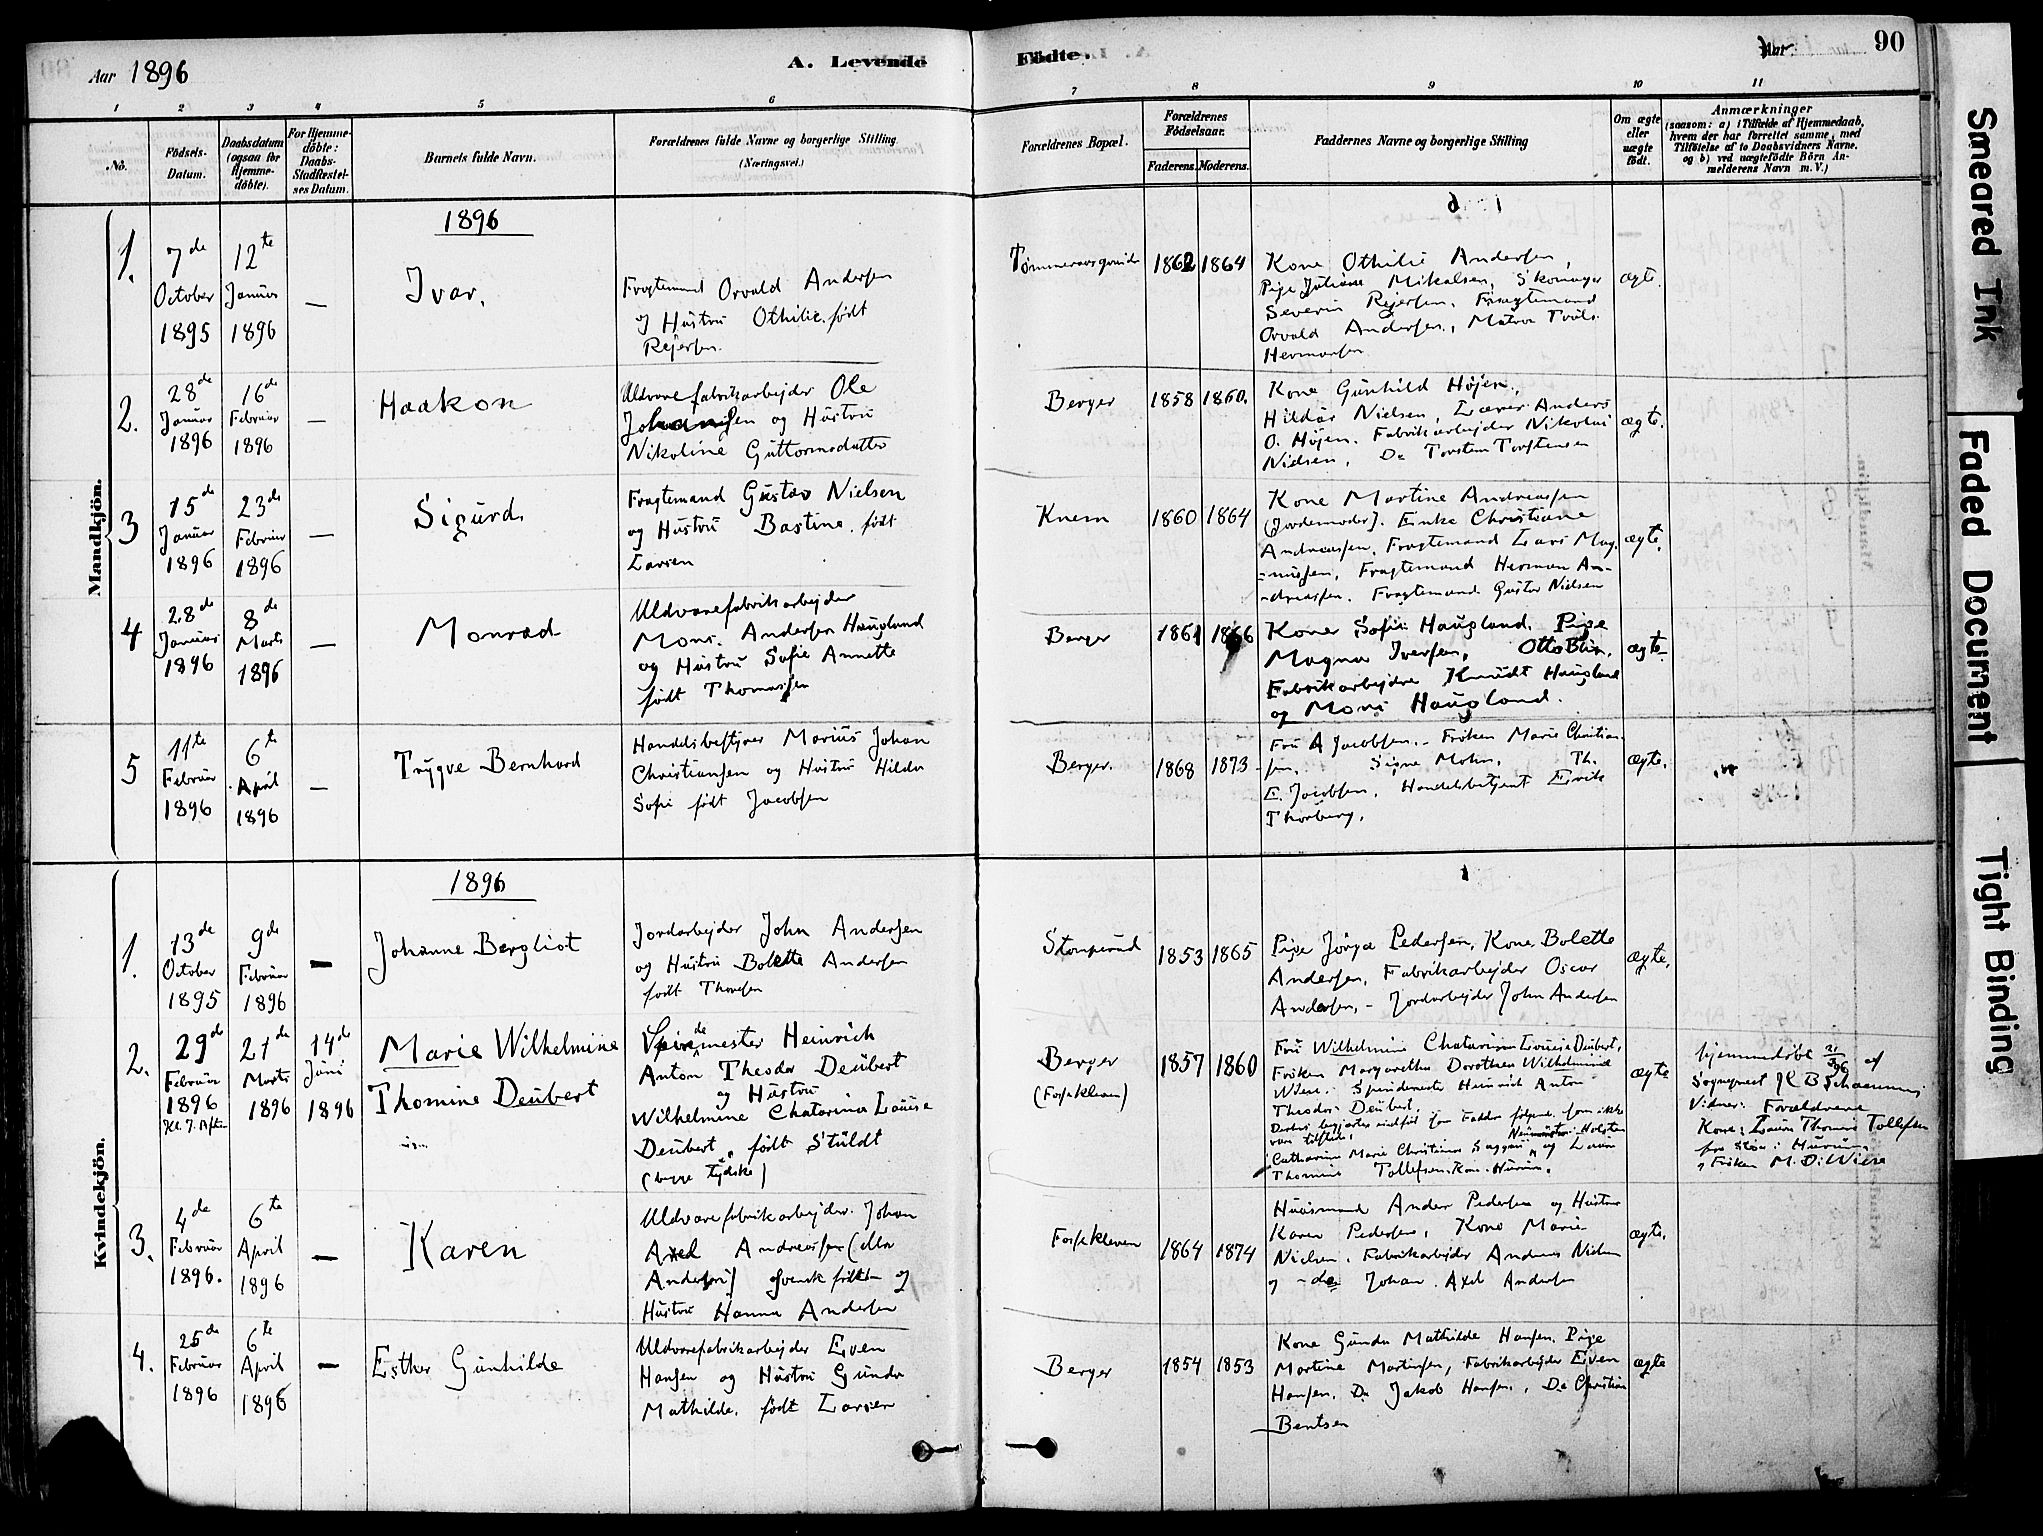 Aar 1896
A. Levende
Födte.
Aar
90
1
2
3
4
5
6
7
8
9
10
11
No.
Födsels-
Datum.
Daabsdatum
(ogsaa for
Hjemme-
döbte).
For Hjemme-
döbte:
Daabs-
Stadfæstel-
ses Datum.
Barnets fulde Navn.
Forældrenes fulde Navne og borgerlige Stilling.
(Næringsvei.)
Forældrenes Bopæl.
Forældrenes
Födselsaar.
Faderens.
Moderens.
Faddernes Navne og borgerlige Stilling
Om ægte
eller
uægte
födt.
Anmærkninger
(saasom: a) i Tilfælde af Hjemmedaab,
hvem der har forrettet samme, med
Tilföielse af to Daabsvidners Navne,
og b) ved uægtefödte Börn An-
melderens Navn m. V.)
Mandkjön.
1896
1.
7de
October
1895
12te
Januar
1896
—
Ivar.
Fragtemand Orvald Andersen
og Hustru Othilie født
Rejersen.
1862
1864
Kone Othilie Andersen,
Pige Juliane Mikalsen,
Severin Rejersen, Fragtemand
Orvald Andersen, Matros
Hermansen
ægte.
2.
28de
Januar
1896
16de
Februar
1896
—
Haakon
Uldvarefabrikarbejder Ole
Johansen og Hustru
Nikoline Guttormsdatter
Berger
1858
1860.
Kone Gunhild Højen,
Hildur Nielsen Lærer Anders
O. Højen. Fabrikarbejder Nikolai
Nielsen, Do Torsten Torstensen
ægte.
3
15de
Januar
1896
23de
Februar
1896
—
Sigurd
Fragtemand Gustav Nielsen
og Hustru Bastine født
Larsen
Knem
1860
1864
Kone Martine Andreassen
(Jordemoder). Enke Christiane
Andreassen, Fragtemand Lars Mag-
=nussen, Fragtemand Herman An-
-dreassen. Fragtemand Gustav Nielsen
ægte.
4
28de
Januar
1896
8de
Marts
1896
—
Monrad
Uldvarefabrikarbejder
Mons. Andersen Haugland
og Hustru Sofie Annette
født Thomassen
Berger
1861
1866
Kone Sofie Haugland. Pige
Magna Iversen, Otto
Fabrikarbejdre Knudt Haugland
og Mons Haugland.
ægte.
5
11te
Februar
1896
6te
April
1896
—
Trygve Bernhard
Handelsbestyrer Marius Johan
Christiansen og Hustru Hilda
Sofie født Jacobsen
Berger.
1868
1873
Fru A Jacobsen. – Frøken Marie Christian-
sen, Signe Mohn, Th.
E. Jacobsen, Handelsbetjent Erik
Thorberg.
ægte.
Kvindekjön.
1896
1.
13de
October
1895
9de
Februar
1896
—
Johanne Bergliot
Jordarbejder John Andersen
og Hustru Bolette Andersen
født Thoresen
1853
1865
Pige Jørga Pedersen, Kone Bolette
Andersen, Fabrikarbejder Oscar
Andersen, – Jordarbejder John Andersen
ægte.
2.
29de
Februar
1896
Kl. 7. Aften
21de
Marts
1896
14de
Juni
1896
Marie Wilhelmine
Thomine Deubert
Spindemester Heinrich
Anton Theodor Deubert
og Hustru
Wilhelmine Chatarina Louise
Deubert, født Stüldt
(begge tydske)
Berger
(Fossekleven)
1857
1860
Fru Wilhelmine Chatarina Louise Deubert,
Frøken Margaretha Dorothea Wilhelmine
Wiese. Spindemester Heinrich Anton
Theodor Deubert.
Neumünster Holsten
Catharina Marie Christiane og Laura
Thomine Tollefsen. Kone. Hurum.
ægte
hjemmedøbt 21/3 96 af
Sogneprest
Vidner: Forældrene
Kone: Laura Thomine Tollefsen
Hurum
og Frøken M. D. Wiese
3.
4de
Februar
1896.
6te
April
1896
—
Karen
Uldvarefabrikarbejder Johan
Axel Andreassen (eller
Andersen) svensk født og
Hustru Hanna Andersen
Fossekleven
1864
1874
Husmand Anders Pedersen og Hustru
Karen Pedersen, Kone Marie
Nielsen. Fabrikarbejder Anders Nielsen
og – do Johan Axel Andersen
ægte.
4.
25de
Februar
1896
6te
April
1896
—
Esther Gunhilde
Uldvarefabrikarbejder Even
Hansen og Hustru Gunda
Mathilde. født Larsen
Berger
1854
1853
Kone Gunda Mathilde Hansen. Pige
Martine Martinsen, Fabrikarbejder Even
Hansen, Do Jakob Hansen, Do Christian
Bentsen
ægte
Smeared Ink
Faded Document
Tight Binding